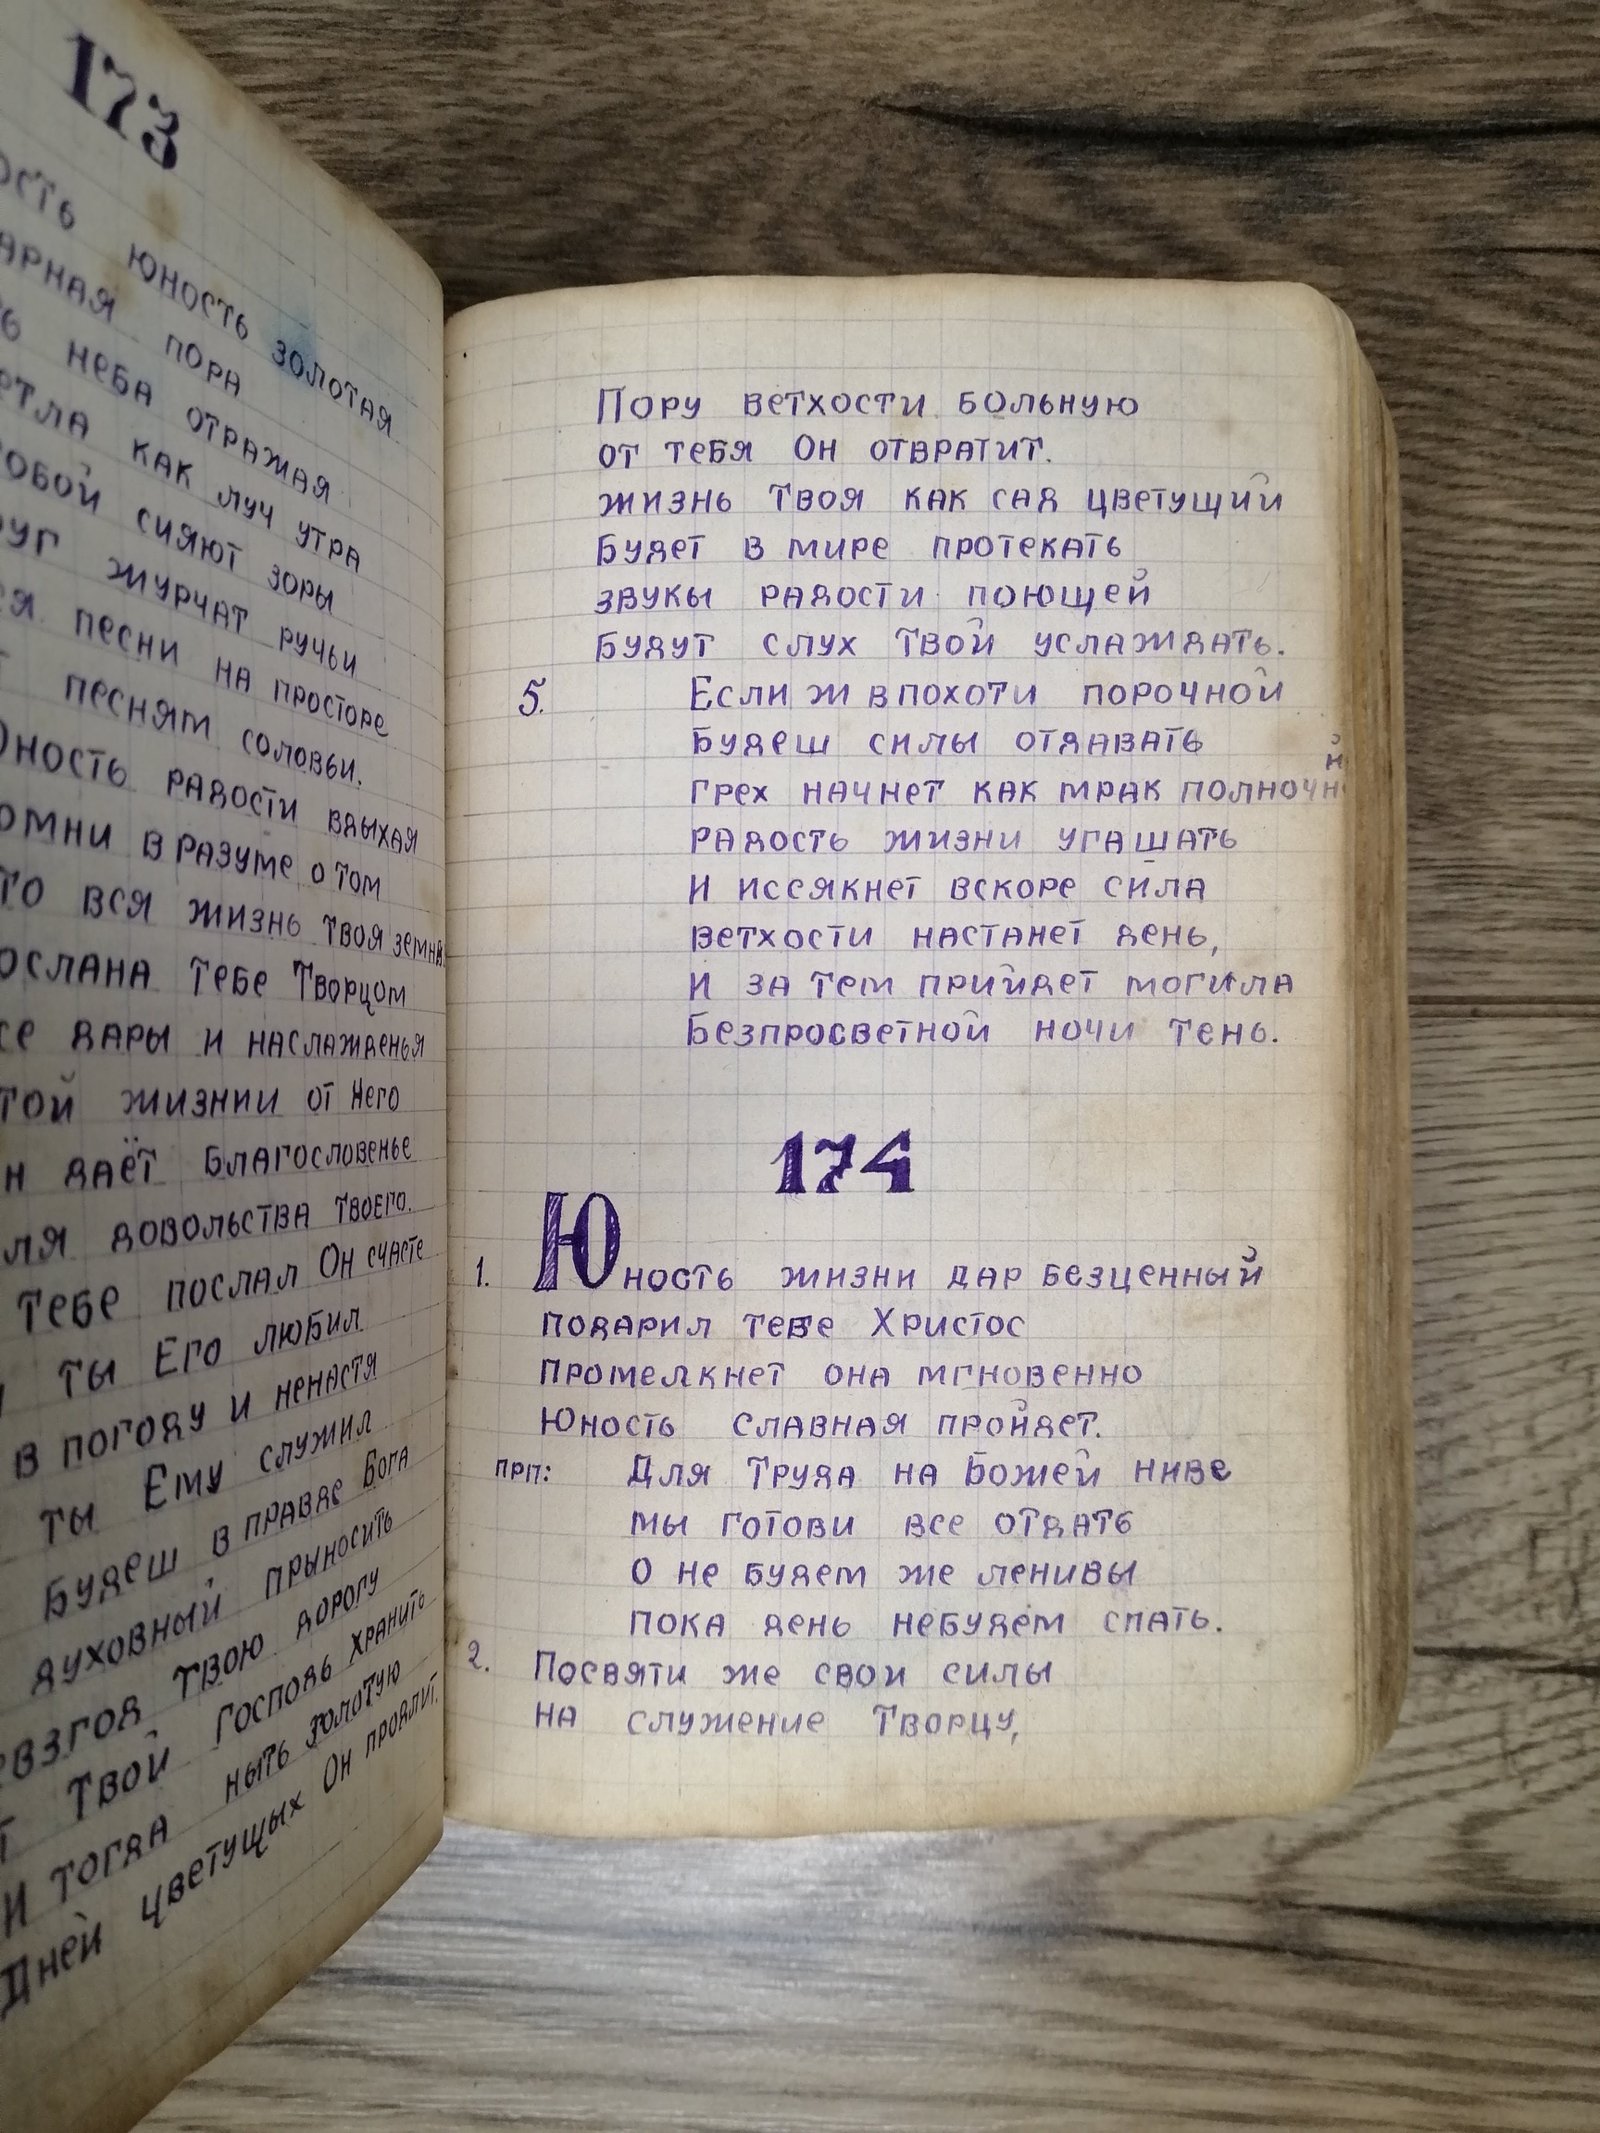 173
юность золотая
пора
неба отражая
как луч утра
сияют зоры
журчат ручьи
песни на просторе
песням соловьи.
радости вдыхая
в разуме о том
вся жизнь твоя
тебе Творцом
дары и наслажденья
жизнии от Него
даёт благословенье
довольства твоего.
Тебе послал Он счасте
ты Его любил
в погоду и ненастя
ты Ему служил
Будеш в правде Бога
духовный прыносить
твою дорогу
твой Господь хранить
И тогда ныть золотую
Дней цветущых Он продлит.
Пору ветхости больную
от тебя Он отвратит.
жизнь твоя как сад цветущий
Будет в мире протекать
звуки радости поющей
Будут слух твой услаждать.
5. Если ж в похоти порочной
Будеш силы отдавать
грех начнет как мрак полночный
радость жизни угашать
И иссякнет вскоре сила
ветхости настанет день,
И за тем прийдет могила
Безпросветной ночи тень.
174
1. Юность жизни дар безценный
подарил тебе Христос
Промелкнет она мгновенно
Юность славная пройдет.
прп: Для труда на Божей ниве
мы готови все отдать
О не будем же ленивы
пока день небудем спать.
2. Посвяти же свои силы
на служение Творцу,